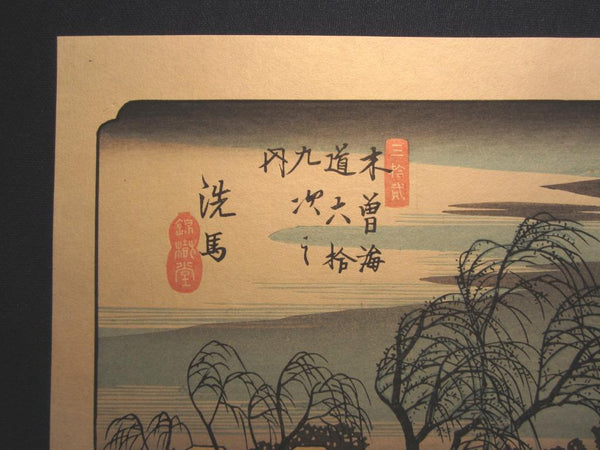 三拾貳
木曽海
道六拾
九次之
内
洗馬
錦樹堂